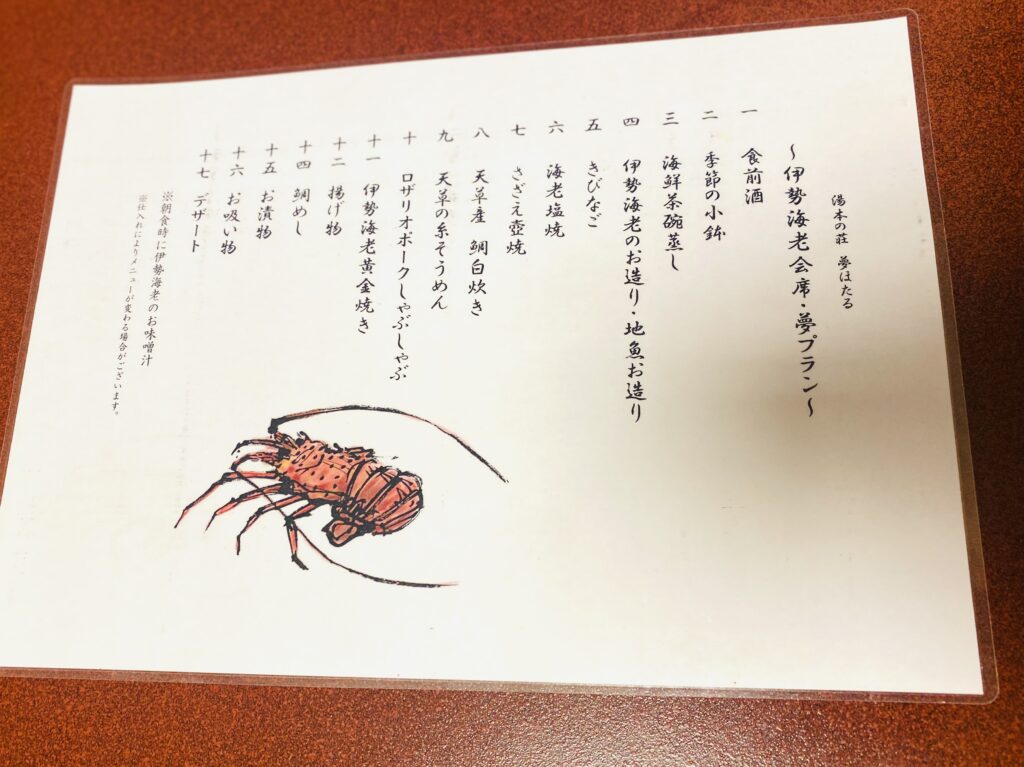 湯本の荘 夢ほたる
～伊勢海老会席・夢プラン～
一 食前酒
二 季節の小鉢
三 海鮮茶碗蒸し
四 伊勢海老のお造り・地魚お造り
五 きびなご
六 海老塩焼
七 さざえ壺焼
八 天草産 鯛白炊き
九 天草の糸そうめん
十 ロザリオポークしゃぶしゃぶ
十一 伊勢海老黄金焼き
十二 揚げ物
十四 鯛めし
十五 お漬物
十六 お吸い物
十七 デザート
※朝食時に伊勢海老のお味噌汁
※仕入れによりメニューが変わる場合がございます。